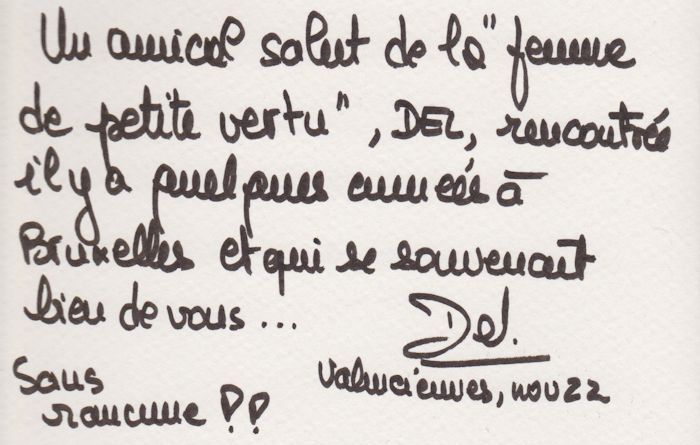 Un amical salut de la "femme
de petite vertu", DEL, rencontrée
il y a quelques années à
Bruxelles et qui se souvenant
bien de vous ...
Del.
Sans
rancune !!
Valenciennes, nov 22